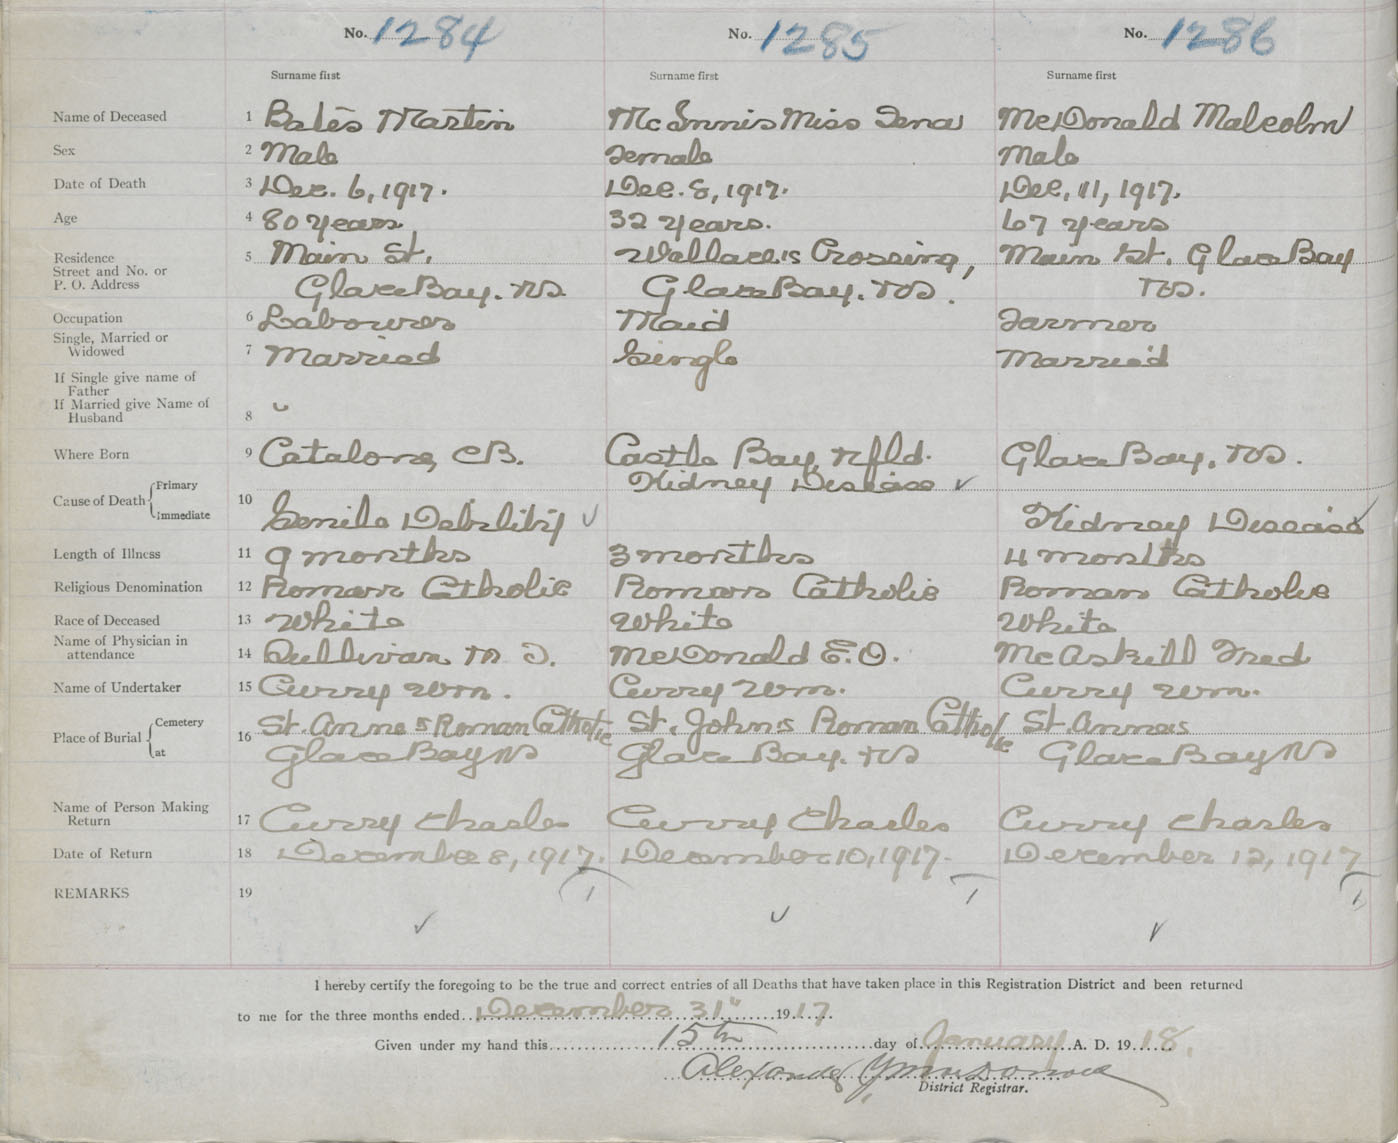 No. 1284 No. 1285 No. 1286
Surname first Surname first Surname first
Name of Deceased 1 Bates Martin McInnis Miss Tena McDonald Malcolm
Sex 2 Male Female Male
Date of Death 3 Dec. 6, 1917. Dec. 8, 1917. Dec. 11, 1917.
Age 4 80 years 32 years. 67 years
Residence 5 Main St. Wallace's Crossing, Main St. Glace Bay
Street and No. or
P. O. Address Glace Bay. NS Glace Bay. NS. NS.
Occupation 6 Labourer Maid Farmer
Single, Married or
Widowed 7 Married Single Married
If Single give name of
Father
If Married give Name of
Husband 8
Where Born 9 Catalone, CB. Castle Bay, Nfld. Glace Bay. NS.
Cause of Death Primary Kidney Disease ✓
10
Immediate Senile Debility ✓ Kidney Disease ✓
Length of Illness 11 9 months 3 months 4 months
Religious Denomination 12 Roman Catholic Roman Catholic Roman Catholic
Race of Deceased 13 White White White
Name of Physician in
attendance 14 Sullivan M T. McDonald E.O. McAskill Fred
Name of Undertaker 15 Curry Wm. Curry Wm. Curry Wm.
Place of Burial Cemetery 16 St. Anne's Roman Catholic St. John's Roman Catholic St. Anne's
at Glace Bay NS Glace Bay. NS Glace Bay NS
Name of Person Making
Return 17 Curry Charles Curry Charles Curry Charles
Date of Return 18 December 8, 1917. December 10, 1917. December 12, 1917
REMARKS 19
✓ ✓ ✓
I hereby certify the foregoing to be the true and correct entries of all Deaths that have taken place in this Registration District and been returned
to me for the three months ended December 31" 1917.
Given under my hand this 15th day of January A. D. 1918.
Alexander
District Registrar.